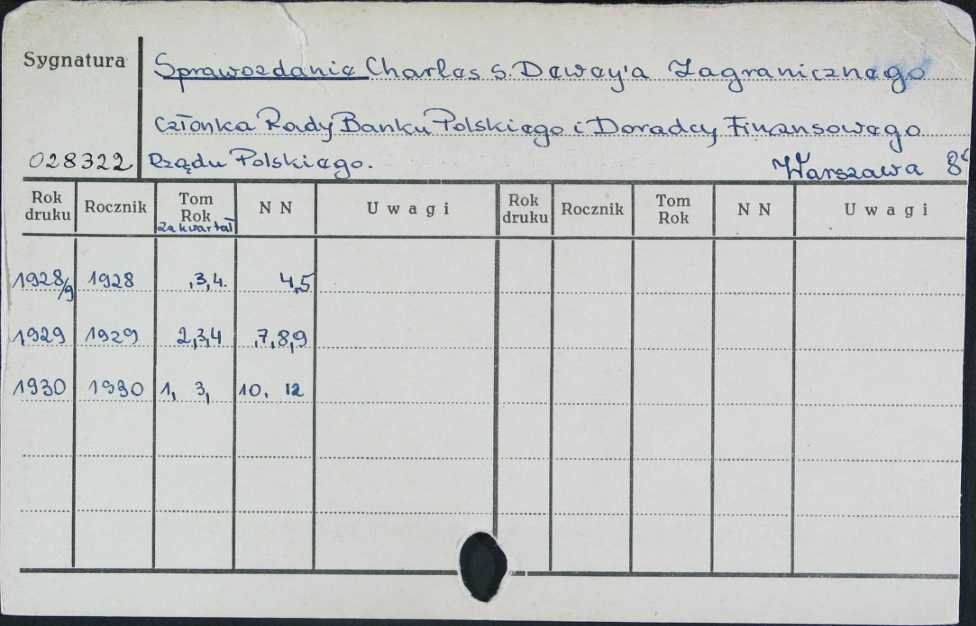 Sygnatura
Sprawozdanie Charles S. Dewey'a Zagranicznego
członka Rady Banku Polskiego i Doradcy Finansowego
028322 Rządu Polskiego. Warszawa 8°
Rok druku Rocznik Tom Rok za kwartał N N Uwagi Rok druku Rocznik Tom Rok N N Uwagi
1928/9 1928 ,3,4. 4,5
1929 1929 2,3,4 ,7,8,9
1930 1930 1, 3, 10, 12